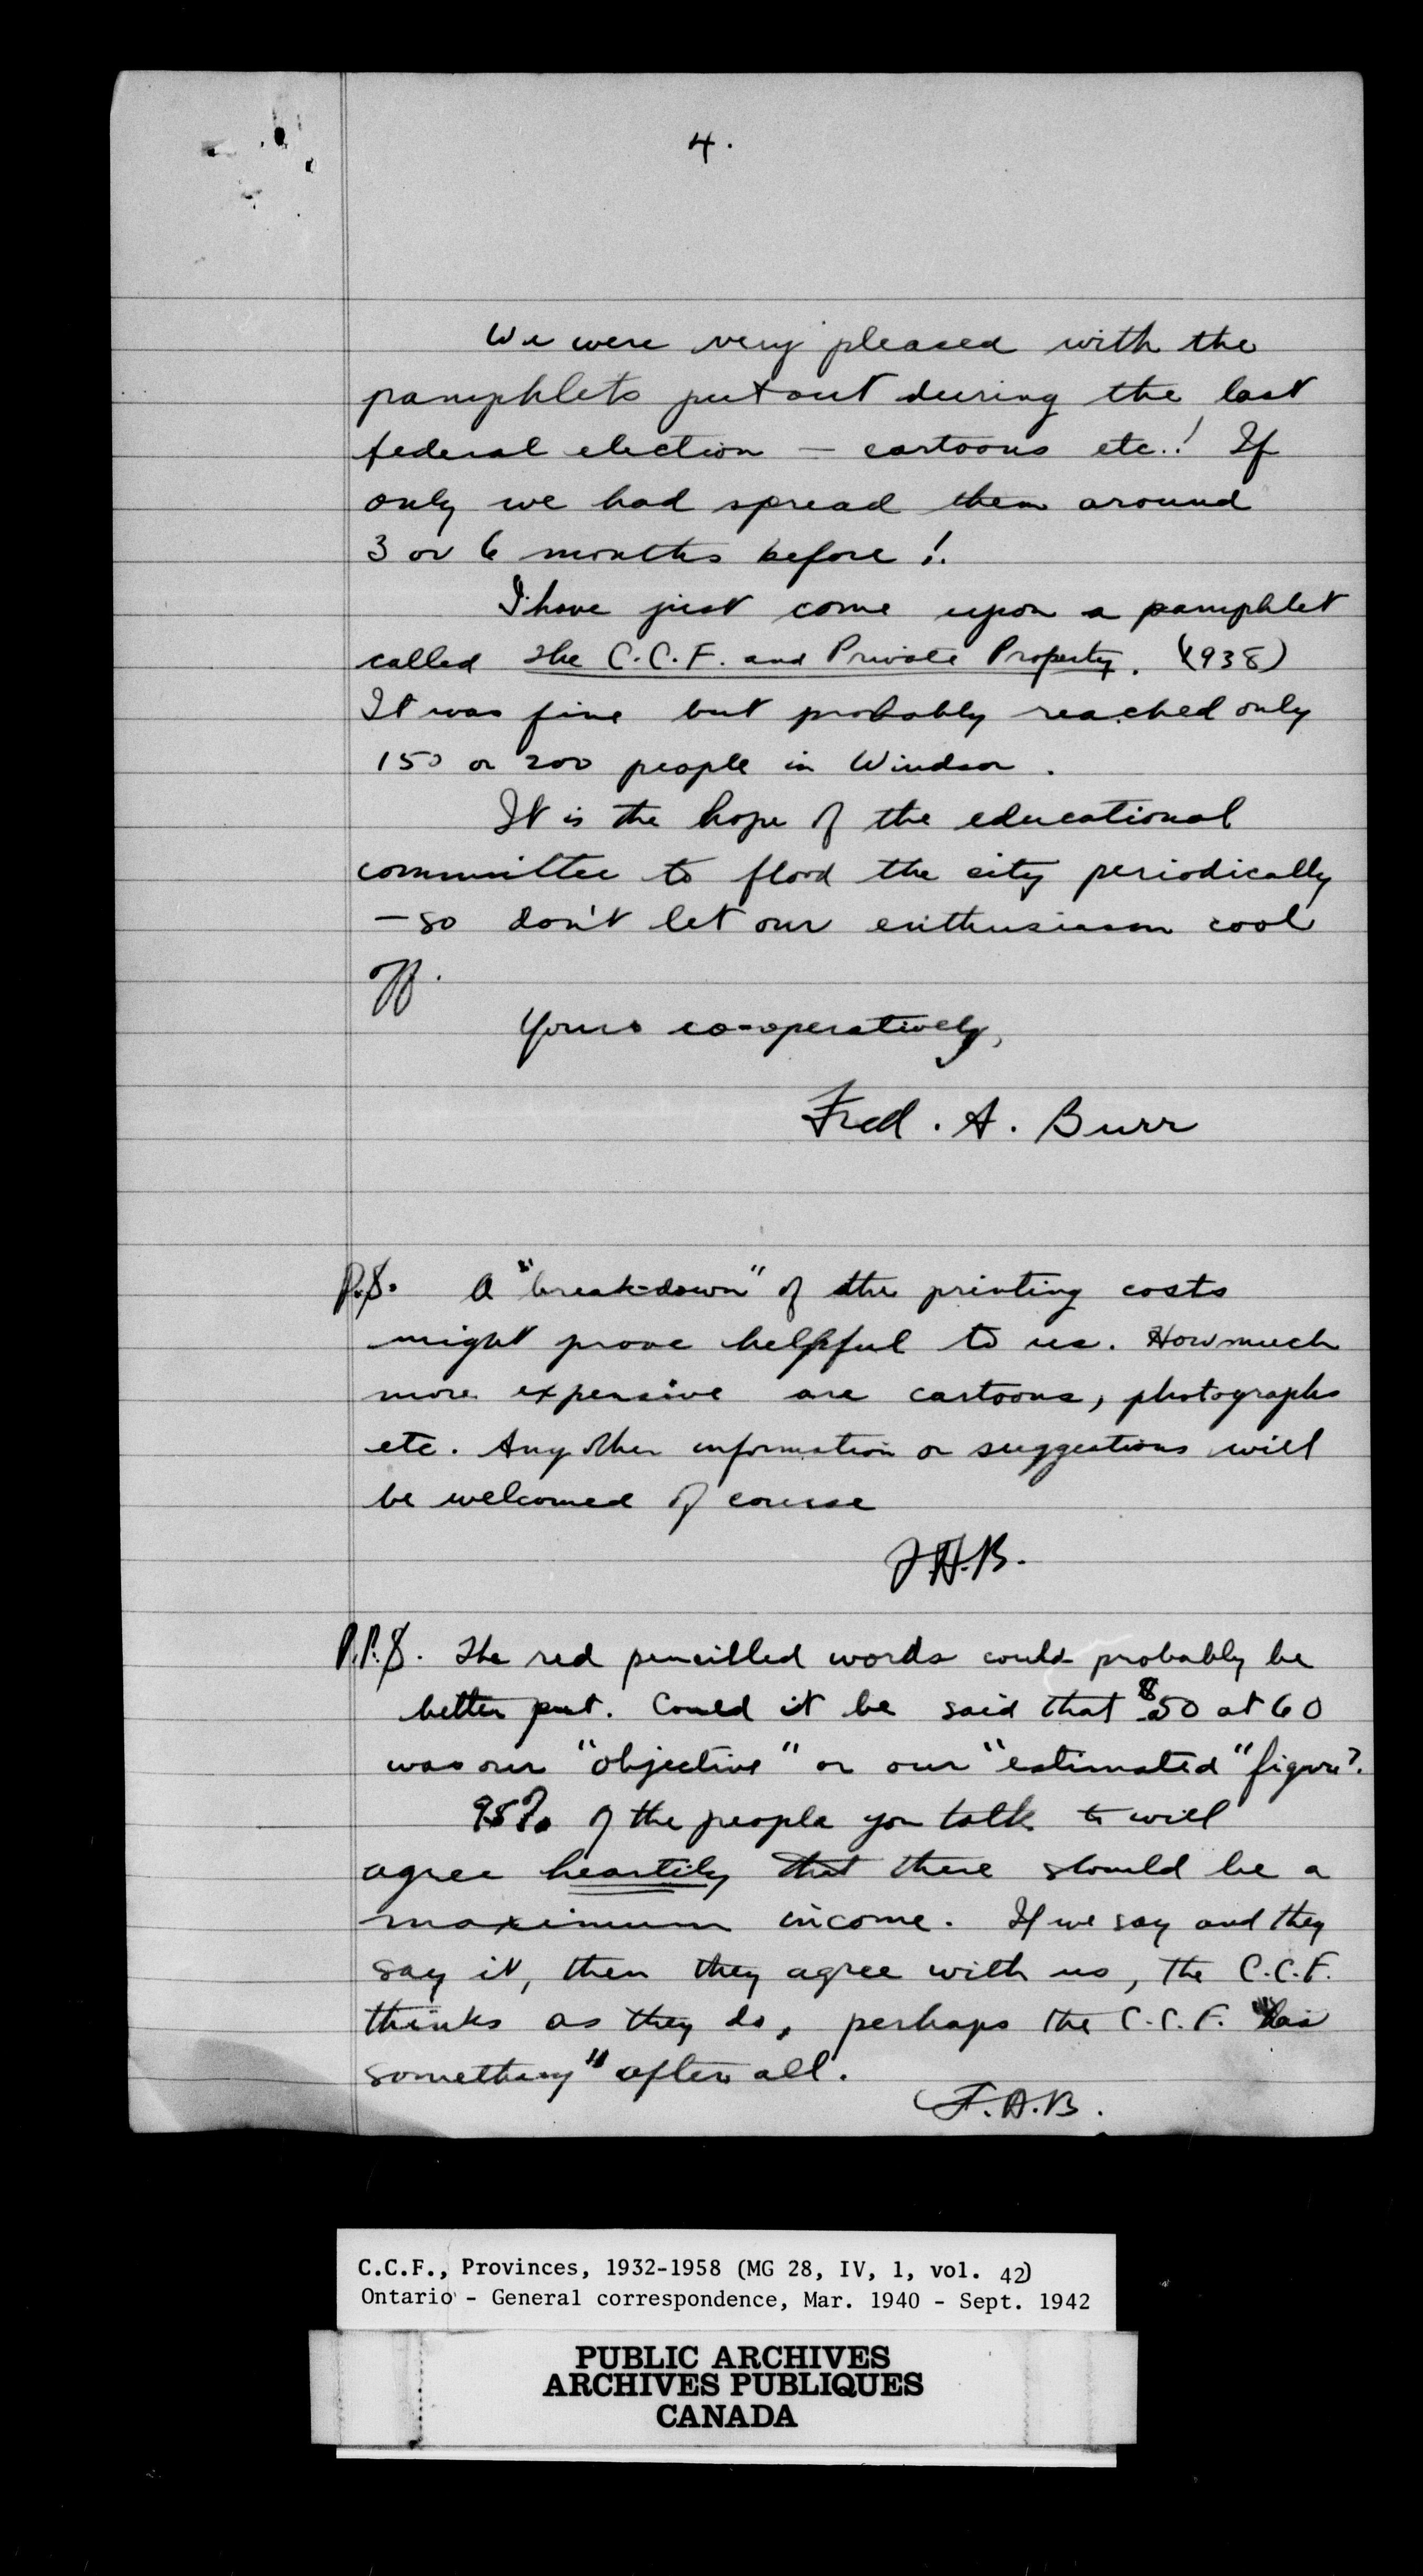 4.
We were very pleased with the
pamphlets put out during the last
federal election — cartoons etc.! If
only we had spread them around
3 or 6 months before!.
I have just come upon a pamphlet
called The C.C.F. and Private Property. (1938)
It was fine but probably reached only
150 or 200 people in Windsor.
It is the hope of the educational
committee to flood the city periodically
— so don't let our enthusiasm cool
off.
Yours co-operatively,
Fred. A. Burr
P.S. A "break-down" of the printing costs
might prove helpful to us. How much
more expensive are cartoons, photographs
etc. Any other information or suggestions will
be welcomed of course
F.A.B.
P.P.S. The red pencilled words could probably be
better put. Could it be said that $50 at 60
was our "objective" or our "estimated" figure?
95% of the people you talk to will
agree heartily that there should be a
maximum income. If we say and they
say it, then they agree with us, the C.C.F.
thinks as they do, perhaps the C.C.F. "has
something" after all.
F.A.B.
C.C.F., Provinces, 1932-1958 (MG 28, IV, 1, vol. 42)
Ontario - General correspondence, Mar. 1940 - Sept. 1942
PUBLIC ARCHIVES
ARCHIVES PUBLIQUES
CANADA